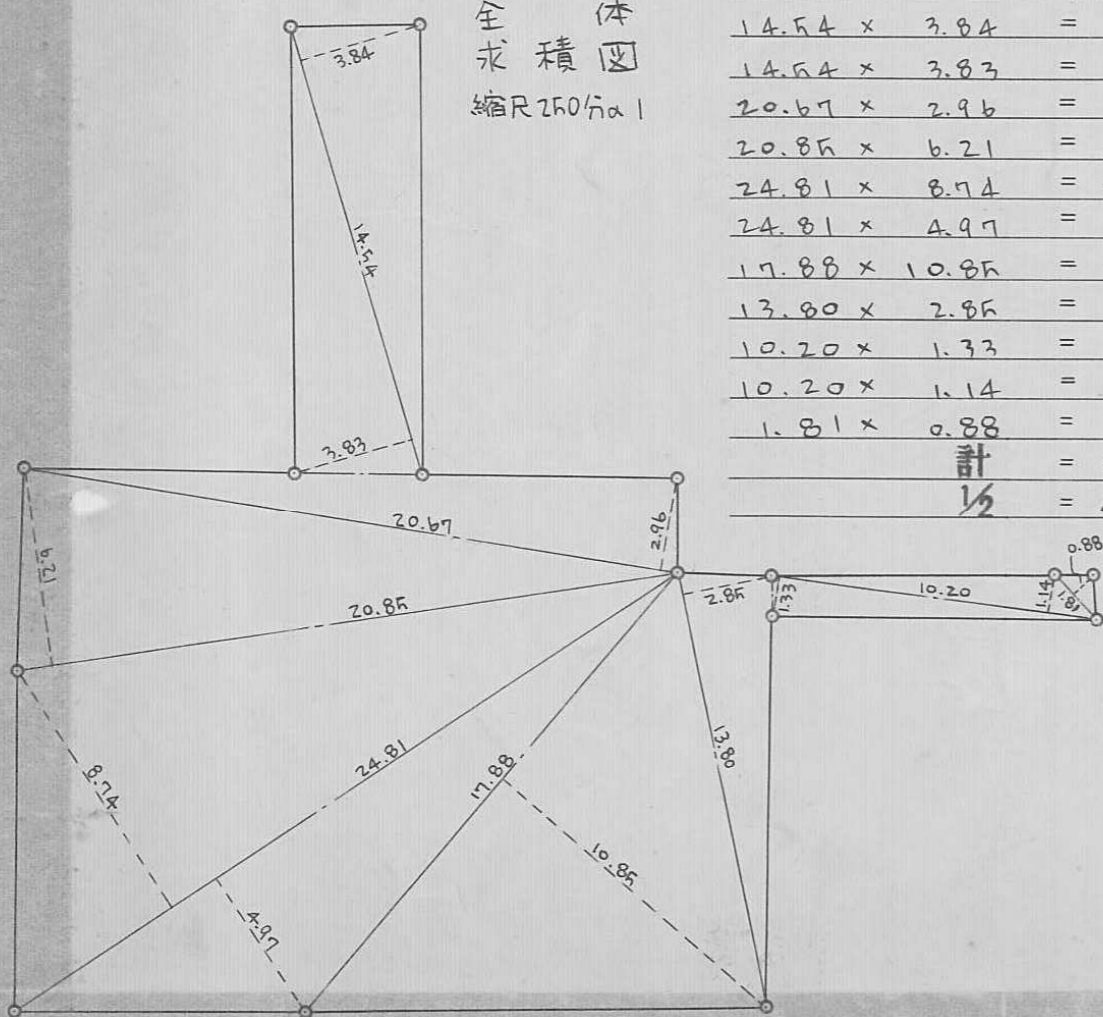 全 体
求 積 図
縮尺250分の1
14.54 × 3.84 =
14.54 × 3.83 =
20.67 × 2.96 =
20.85 × 6.21 =
24.81 × 8.74 =
24.81 × 4.97 =
17.88 × 10.85 =
13.80 × 2.85 =
10.20 × 1.33 =
10.20 × 1.14 =
1.81 × 0.88 =
計 =
1/2 =
3.84
14.54
3.83
20.67
2.96
6.21
20.85
2.85
1.33
10.20
1.14
1.81
0.88
24.81
17.88
13.80
8.74
10.85
4.97